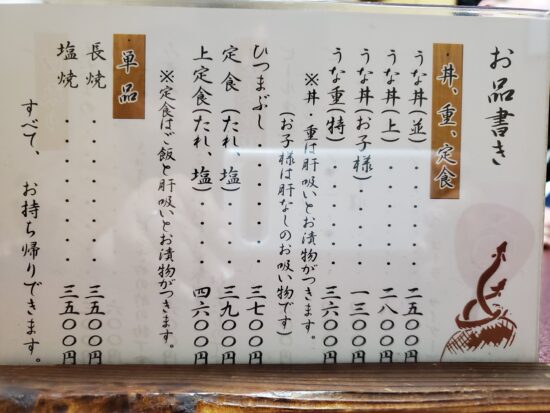 お品書き
丼、重、定食
うな丼(並)・・・・・二五〇〇円
うな丼(上)・・・・・二八〇〇円
うな丼(お子様)・・・・一三〇〇円
うな重(特)・・・・・三六〇〇円
※丼・重は肝吸いとお漬物がつきます。
(お子様は肝なしのお吸い物です)
ひつまぶし・・・・・三七〇〇円
定食(たれ、塩)・・・・三九〇〇円
上定食(たれ、塩)・・・四六〇〇円
※定食はご飯と肝吸いとお漬物がつきます。
単品
長焼・・・・・・・三五〇〇円
塩焼・・・・・・・三五〇〇円
すべて、お持ち帰りできます。